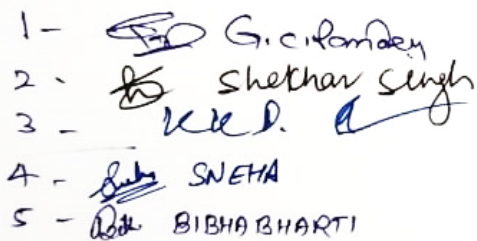 1 - G.C. Pandey
2 - Shekhar Singh
3 - K K D.
4 - SNEHA
5 - BIBHA BHARTI